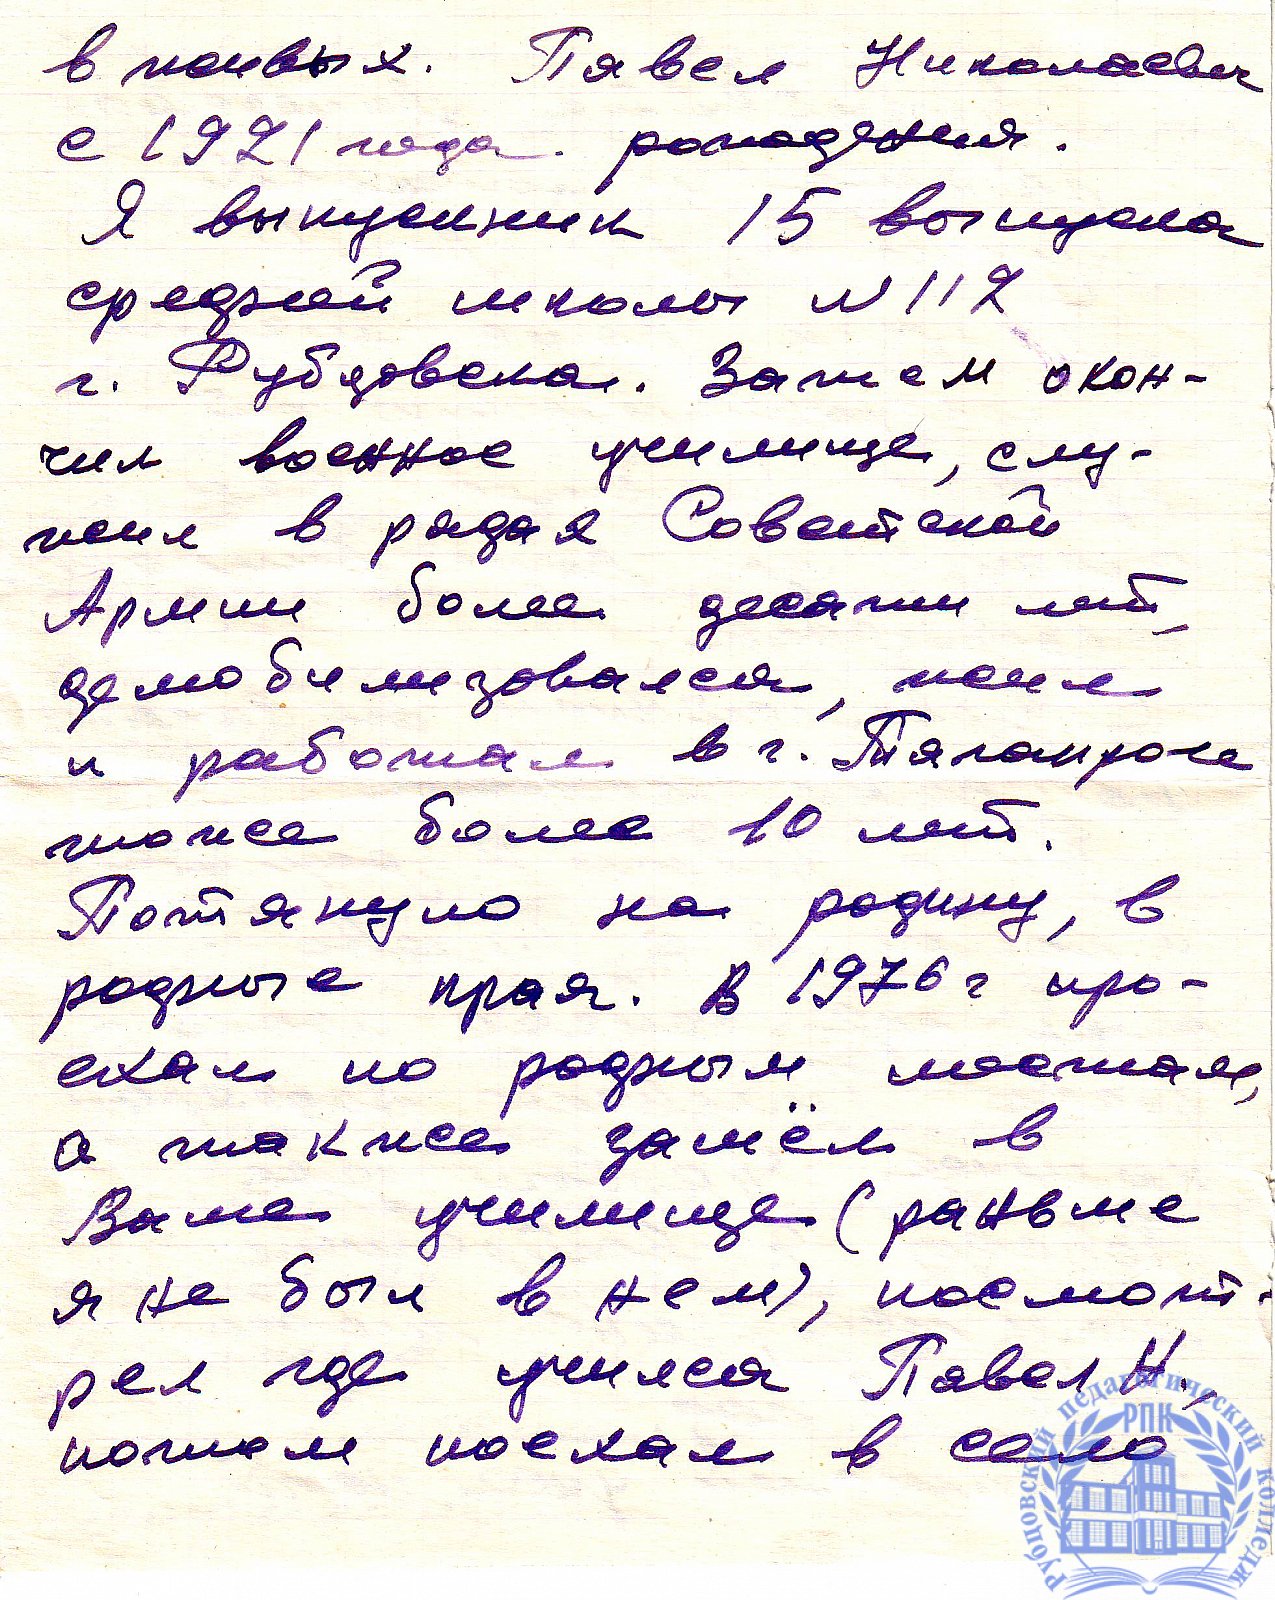 в живых. Павел Николаевич
с 1921 года рождения.
Я выпускник 15 выпуска
средней школы №112
г. Рубцовска. Затем окон-
чил военное училище, слу-
жил в рядах Советской
Армии более десяти лет,
демобилизовался, жил
и работал в г. Таганроге
тоже более 10 лет.
Потянуло на родину, в
родные края. В 1976 г про-
ехал по родным местам,
а также зашёл в
Ваше училище (раньше
я не был в нем), посмот-
рел где учился Павел Н.,
потом поехал в село
Рубцовский педагогический колледж
РПК